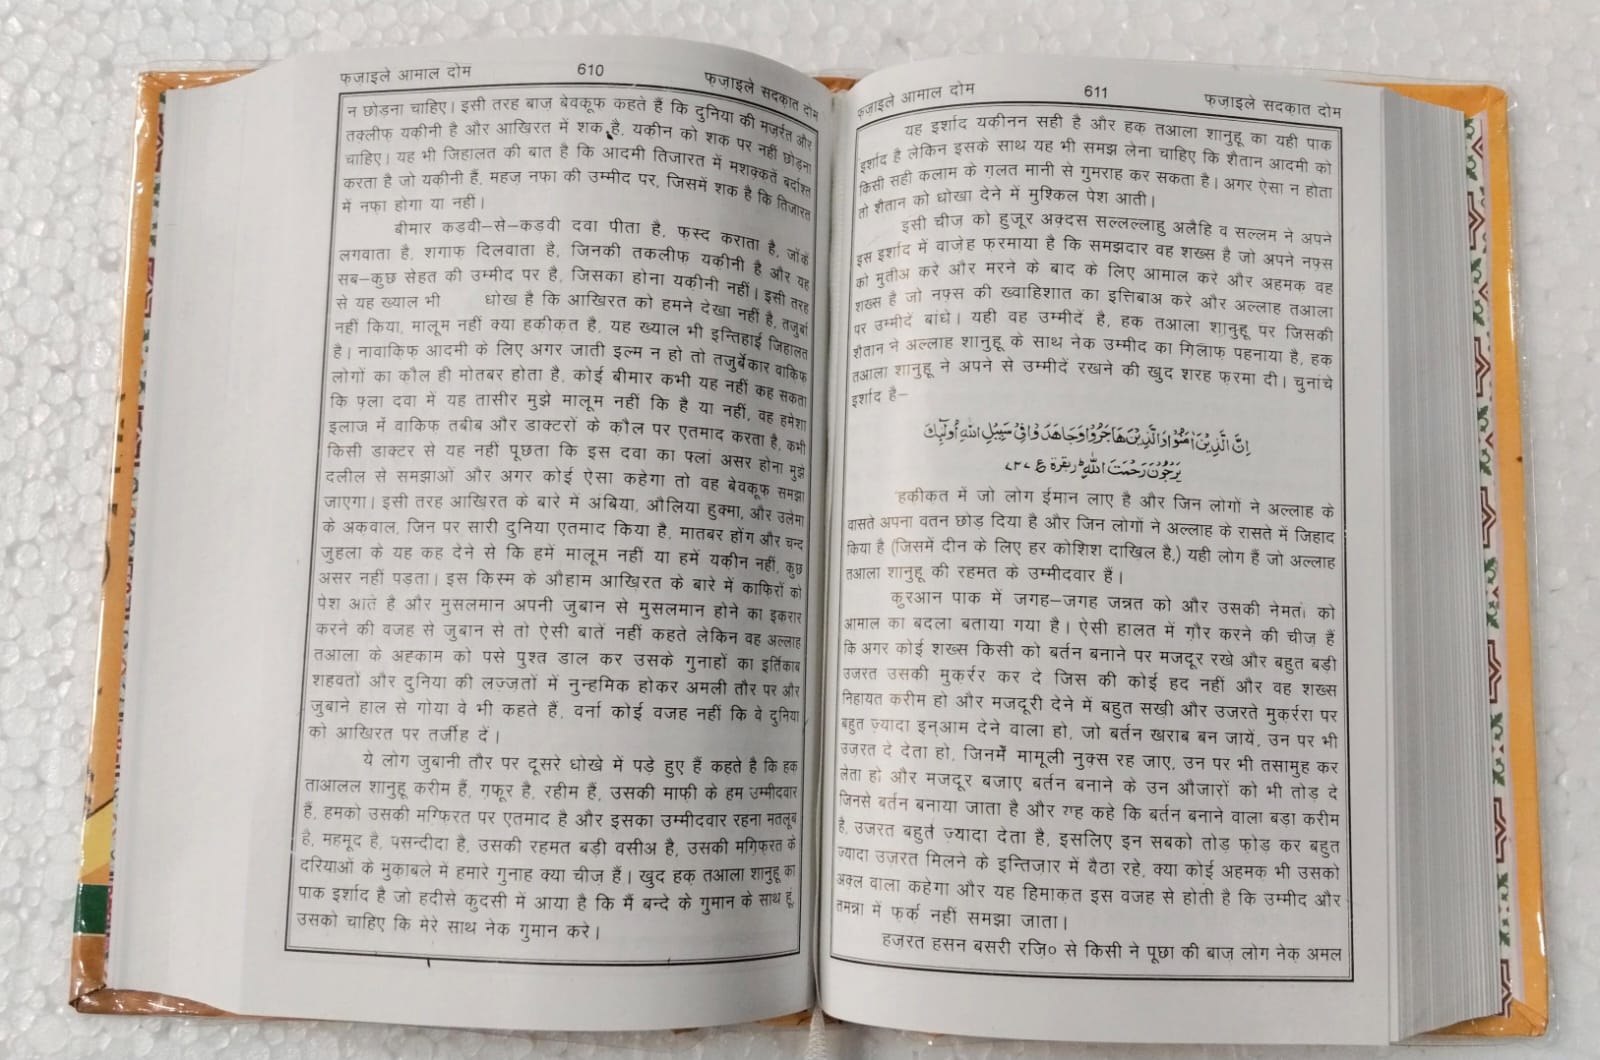 फ़ज़ाइले आमाल दोम 610 फ़ज़ाइले सदक़ात दोम
न छोड़ना चाहिए। इसी तरह बाज बेवकूफ कहते हैं कि दुनिया की मज़र्रत और
तक्लीफ़ यक़ीनी है और आखिरत में शक है, यक़ीन को शक पर नहीं छोड़ना
चाहिए। यह भी जिहालत की बात है कि आदमी तिजारत में मशक़्क़तें बर्दाश्त
करता है जो यक़ीनी हैं, महज़ नफ़ा की उम्मीद पर, जिसमें शक है कि तिजारत
में नफ़ा होगा या नहीं।
बीमार कडवी–से–कडवी दवा पीता है, फ़स्द कराता है, जोंकें
लगवाता है, शगाफ़ दिलवाता है, जिनकी तकलीफ यक़ीनी है और यह
सब–कुछ सेहत की उम्मीद पर है, जिसका होना यक़ीनी नहीं। इसी तरह
से यह ख्याल भी धोख है कि आखिरत को हमने देखा नहीं है, तजुर्बा
नहीं किया, मालूम नहीं क्या हकीकत है, यह ख्याल भी इन्तिहाई जिहालत
है। नावाक़िफ़ आदमी के लिए अगर जाती इल्म न हो तो तजुर्बेकार वाकिफ
लोगों का कौल ही मोतबर होता है, कोई बीमार कभी यह नहीं कह सकता
कि फ़्ला दवा में यह तासीर मुझे मालूम नहीं कि है या नहीं, वह हमेशा
इलाज में वाकिफ़ तबीब और डाक्टरों के क़ौल पर एतमाद करता है, कभी
किसी डाक्टर से यह नहीं पूछता कि इस दवा का फ्लां असर होना मुझे
दलील से समझाओं और अगर कोई ऐसा कहेगा तो वह बेवकूफ़ समझा
जाएगा। इसी तरह आख़िरत के बारे में अंबिया, औलिया हुक्मा, और उलेमा
के अक़वाल, जिन पर सारी दुनिया एतमाद किया है, मातबर होंग और चन्द
जुहला के यह कह देने से कि हमें मालूम नहीं या हमें यक़ीन नहीं, कुछ
असर नहीं पड़ता। इस किस्म के औहाम आख़िरत के बारे में काफिरों को
पेश आते है और मुसलमान अपनी जुबान से मुसलमान होने का इकरार
करने की वजह से जुबान से तो ऐसी बातें नहीं कहते लेकिन वह अल्लाह
तआला के अह्काम को पसे पुश्त डाल कर उसके गुनाहों का इर्तिकाब
शहवतों और दुनिया की लज़्ज़तों में नुन्हमिक होकर अमली तौर पर और
जुबाने हाल से गोया वे भी कहते हैं, वर्ना कोई वजह नहीं कि वे दुनिया
को आखिरत पर तर्जीह दें।
ये लोग जुबानी तौर पर दूसरे धोखे में पड़े हुए हैं कहते है कि हक़
ताआलल शानुहू करीम हैं, ग़फूर है, रहीम हैं, उसकी माफ़ी के हम उम्मीदवार
हैं, हमको उसकी मग्फ़िरत पर एतमाद है और इसका उम्मीदवार रहना मतलूब
है, महमूद है, पसन्दीदा है, उसकी रहमत बड़ी वसीअ है, उसकी मग़िफ़रत के
दरियाओं के मुक़ाबले में हमारे गुनाह क्या चीज़ हैं। खुद हक़ तआला शानुहू का
पाक इर्शाद है जो हदीसे कुदसी में आया है कि मैं बन्दे के गुमान के साथ हूं,
उसको चाहिए कि मेरे साथ नेक गुमान करे।
फ़ज़ाइले आमाल दोम 611 फ़ज़ाइले सदक़ात दोम
यह इर्शाद यकीनन सही है और हक़ तआला शानुहू का यही पाक
इर्शाद है लेकिन इसके साथ यह भी समझ लेना चाहिए कि शैतान आदमी को
किसी सही कलाम के ग़लत मानी से गुमराह कर सकता है। अगर ऐसा न होता
तो शैतान को धोखा देने में मुश्किल पेश आती।
इसी चीज को हुजूर अक़्दस सल्लल्लाहु अलैहि व सल्लम ने अपने
इस इर्शाद में वाजेह फरमाया है कि समझदार वह शख्स है जो अपने नफ़्स
को मुतीअ करे और मरने के बाद के लिए आमाल करे और अहमक वह
शख्स है जो नफ़्स की ख्वाहिशात का इत्तिबाअ करे और अल्लाह तआला
पर उम्मीदें बांधे। यही वह उम्मीदें है, हक़ तआला शानुहू पर जिसकी
शैतान ने अल्लाह शानुहू के साथ नेक उम्मीद का गिलाफ़ पहनाया है, हक़
तआला शानुहू ने अपने से उम्मीदें रखने की खुद शरह फ़रमा दी। चुनांचे
इर्शाद है–
اِنَّ الَّذِيْنَ اٰمَنُوْا وَالَّذِيْنَ هَاجَرُوْا وَجَاهَدُوْا فِيْ سَبِيْلِ اللهِ اُولٰٓئِكَ
يَرْجُوْنَ رَحْمَتَ اللهِ ط (بقرة ع ٢٧)
'हक़ीक़त में जो लोग ईमान लाए है और जिन लोगों ने अल्लाह के
वासते अपना वतन छोड़ दिया है और जिन लोगों ने अल्लाह के रासते में जिहाद
किया है (जिसमें दीन के लिए हर कोशिश दाखिल है,) यही लोग हैं जो अल्लाह
तआला शानुहू की रहमत के उम्मीदवार हैं।
कुरआन पाक में जगह–जगह जन्नत को और उसकी नेमतां को
आमाल का बदला बताया गया है। ऐसी हालत में ग़ौर करने की चीज़ हैं
कि अगर कोई शख्स किसी को बर्तन बनाने पर मजदूर रखे और बहुत बड़ी
उजरत उसकी मुक़र्रर कर दे जिस की कोई हद नहीं और वह शख्स
निहायत करीम हो और मजदूरी देने में बहुत सख़ी और उजरते मुक़र्ररा पर
बहुत ज़्यादा इन्आम देने वाला हो, जो बर्तन खराब बन जायें, उन पर भी
उज़रत दे देता हो, जिनमें मामूली नुक्स रह जाए, उन पर भी तसामुह कर
लेता हो और मजदूर बजाए बर्तन बनाने के उन औजारों को भी तोड़ दे
जिनसे बर्तन बनाया जाता है और यह कहे कि बर्तन बनाने वाला बड़ा करीम
है, उजरत बहुत ज़्यादा देता है, इसलिए इन सबको तोड़ फ़ोड़ कर बहुत
ज्यादा उज़रत मिलने के इन्तिज़ार में बैठा रहे, क्या कोई अहमक भी उसको
अक्ल वाला कहेगा और यह हिमाक़त इस वजह से होती है कि उम्मीद और
तमन्ना में फ़र्क नहीं समझा जाता।
हज़रत हसन बसरी रज़ि० से किसी ने पूछा की बाज़ लोग नेक़ अमल